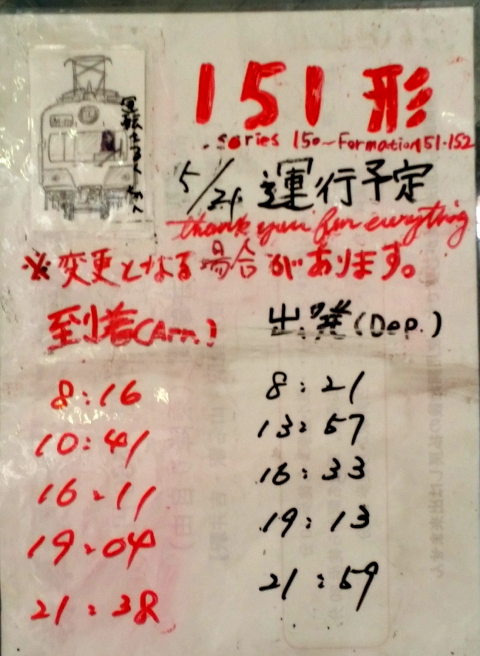 151形
series 150~Formation151-152
5/21 運行予定
thank you for everything
※変更となる場合があります。
到着(Arr.) 出発(Dep.)
8:16 8:21
10:41 13:57
16:11 16:33
19:04 19:13
21:38 21:59